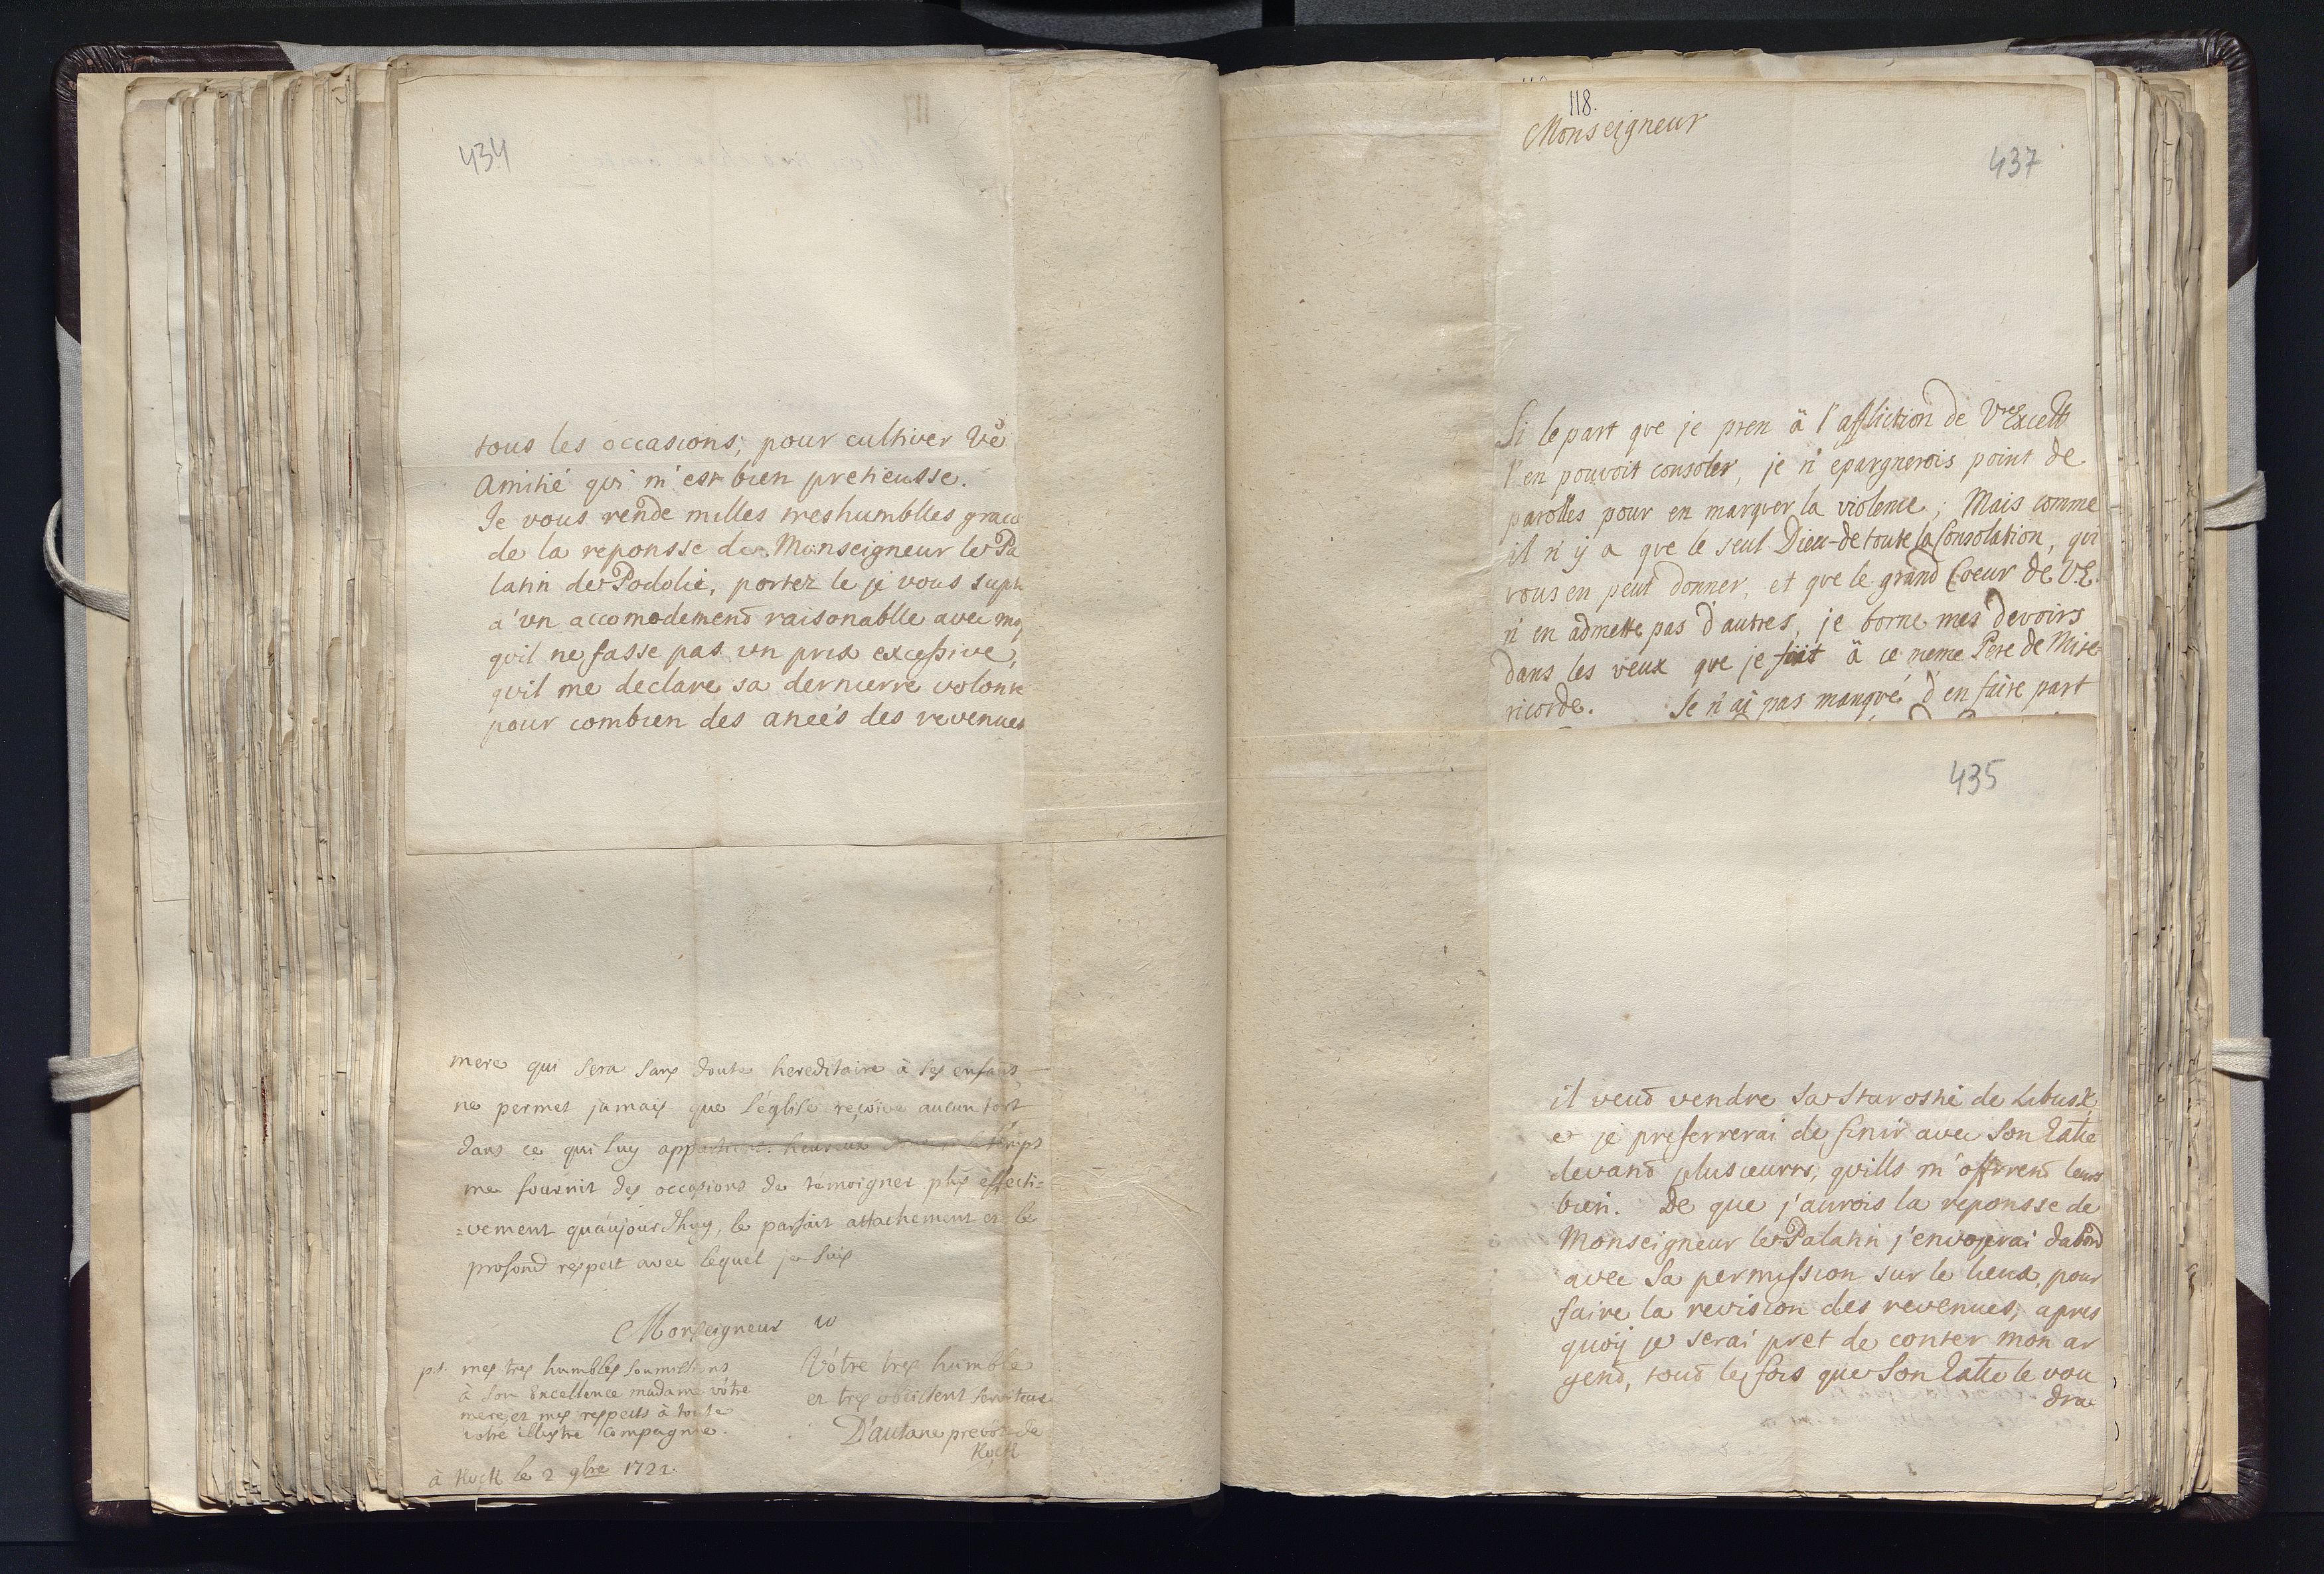 434
tous les occasions; pour cultiver Vẽ
Amitié qui m'est bien pretieusse.
Je vous rende milles treshumblles grace
de la reponsse de Monseigneur le Pa
latin de Podolie, portez le je vous supli
a'un accomodemend raisonablle avec moy
quil ne fasse pas un prix excessive,
quil me declare sa dernierre volonte
pour combien des aneés des revenues
mere qui sera sans doute hereditaire à ses enfans
ne permet jamais que l'eglise reçoive aucun tort
dans ce qui luy heureux temps
me fournit des occasions de témoigner plus éffecti=
=vement quáujourdhuy, le parfait attachement et le
profond respect avec lequel je suis
Monseigneur
Vôtre tres humble
et tres obeissent serviteur
D'autane prevôt de
Kock
ps. mes tres humbles soumissions
à son Excellence madame vôtre
mere, et mes respects à toute
vôtre illustre compagnie.
à Kock le 2 9bre 1722.
118.
Monseigneur
437
Si le part que je pren ä l'affliction de Vre Excell
l'en pouvoit consoler, je n'epargnerois point de
parolles pour en marquer la violence; Mais comme
il n'ÿ a que le seul Dieu de toute la Consolation, qui
vous en peut donner, et que le grand Coeur de V.E.
n'en admette pas d'autres, je borne mes devoirs
dans les veux que je fait ä ce meme Pere de Mise=
ricorde. Je n'ai pas manqué d'en faire part
435
il veud vendre sa Starostie de Libusz,
e je preferrerai de finir avec Son Estie
devand plusieurrs, quills m'offrend leurs
bien. De que j'aurois la reponsse de
Monseigneur le Palatin j'envojerai dabord
avec Sa permission sur le lieux, pour
faire la revision des revenues; apres
quoÿ je serai pret de conter mon ar
gend, toud le fois que Son Estie le vou
dra